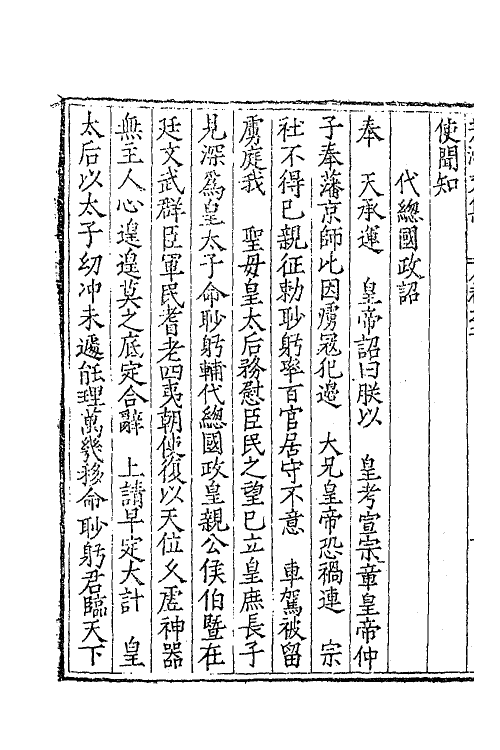 使聞知
代總國政詔
奉　天承運　皇帝詔曰朕以　皇考宣宗章皇帝仲
子奉藩京師比因虜冦犯邉　大兄皇帝恐禍連　宗
社不得已親征勑眇躬率百官居守不意　車駕被留
虜庭我　聖母皇太后務慰臣民之望已立皇庶長子
見深爲皇太子命眇躬輔代總國政皇親公侯伯暨在
廷文武群臣軍民耆老四夷朝使復以天位乆虚神器
無主人心遑遑莫之底定合辭　上請早定大計　皇
太后以太子幼冲未遽能理萬幾移命眇躬君臨天下